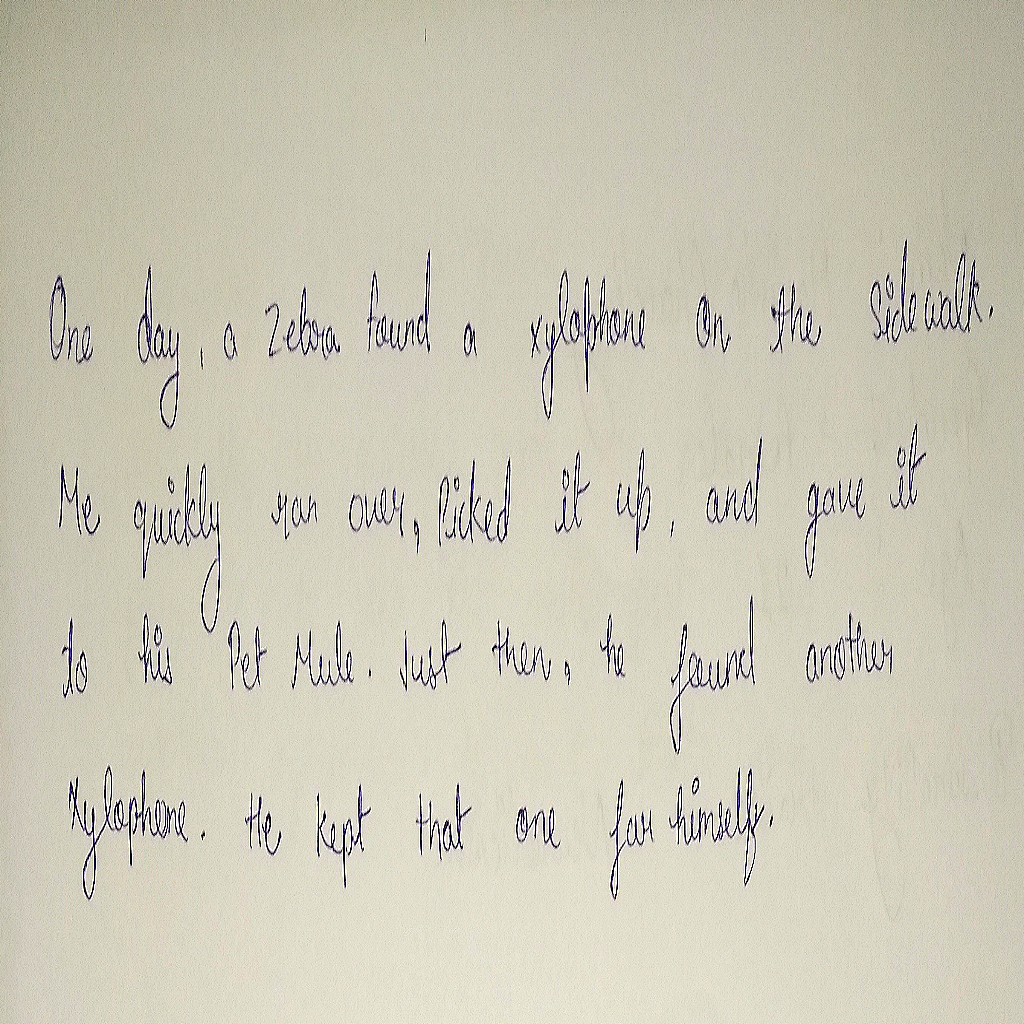 One day, a Zebra found a xylophone on the Sidewalk.
He quickly ran over, Picked it up, and gave it
to his Pet Mule. Just then, he found another
Xylophone. He kept that one for himself.